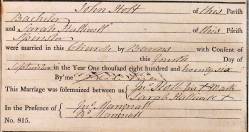 John Holt of this Parish
Bachelor
and Sarah Halliwell of this Parish
Spinster
were married in this Church by Banns with Consent of
this fourth Day of
September in the Year One thousand eight hundred and twenty six
By me
This Marriage was solemnized between us Jno. Holt his X Mark
Sarah Halliwell X
In the Presence of
No. 815.